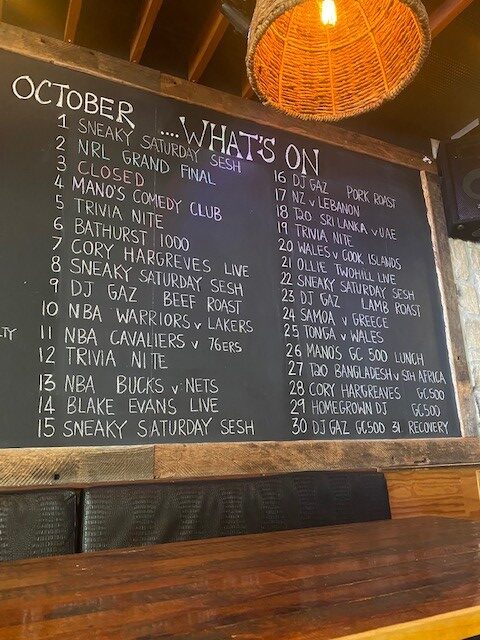 OCTOBER ....WHAT'S ON
1 SNEAKY SATURDAY SESH
2 NRL GRAND FINAL
3 CLOSED
4 MANO'S COMEDY CLUB
5 TRIVIA NITE
6 BATHURST 1000
7 CORY HARGREVES LIVE
8 SNEAKY SATURDAY SESH
9 DJ GAZ BEEF ROAST
10 NBA WARRIORS v LAKERS
LTY
11 NBA CAVALIERS v 76ERS
12 TRIVIA NITE
13 NBA BUCKS v NETS
14 BLAKE EVANS LIVE
15 SNEAKY SATURDAY SESH
16 DJ GAZ PORK ROAST
17 NZ v LEBANON
18 T20 SRI LANKA v UAE
19 TRIVIA NITE
20 WALES v COOK ISLANDS
21 OLLIE TWOHILL LIVE
22 SNEAKY SATURDAY SESH
23 DJ GAZ LAMB ROAST
24 SAMOA v GREECE
25 TONGA v WALES
26 MANOS GC 500 LUNCH
27 T20 BANGLADESH v STH AFRICA
28 CORY HARGREAVES GC500
29 HOMEGROWN DJ GC500
30 DJ GAZ GC500 31 RECOVERY